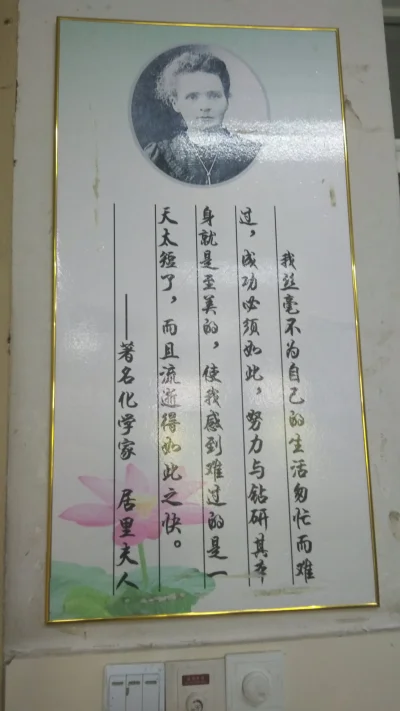 我丝毫不为自己的生活匆忙而难
过，成功必须如此，努力与钻研其本
身就是至美的，使我感到难过的是一
天太短了，而且流逝得如此之快。
——著名化学家 居里夫人